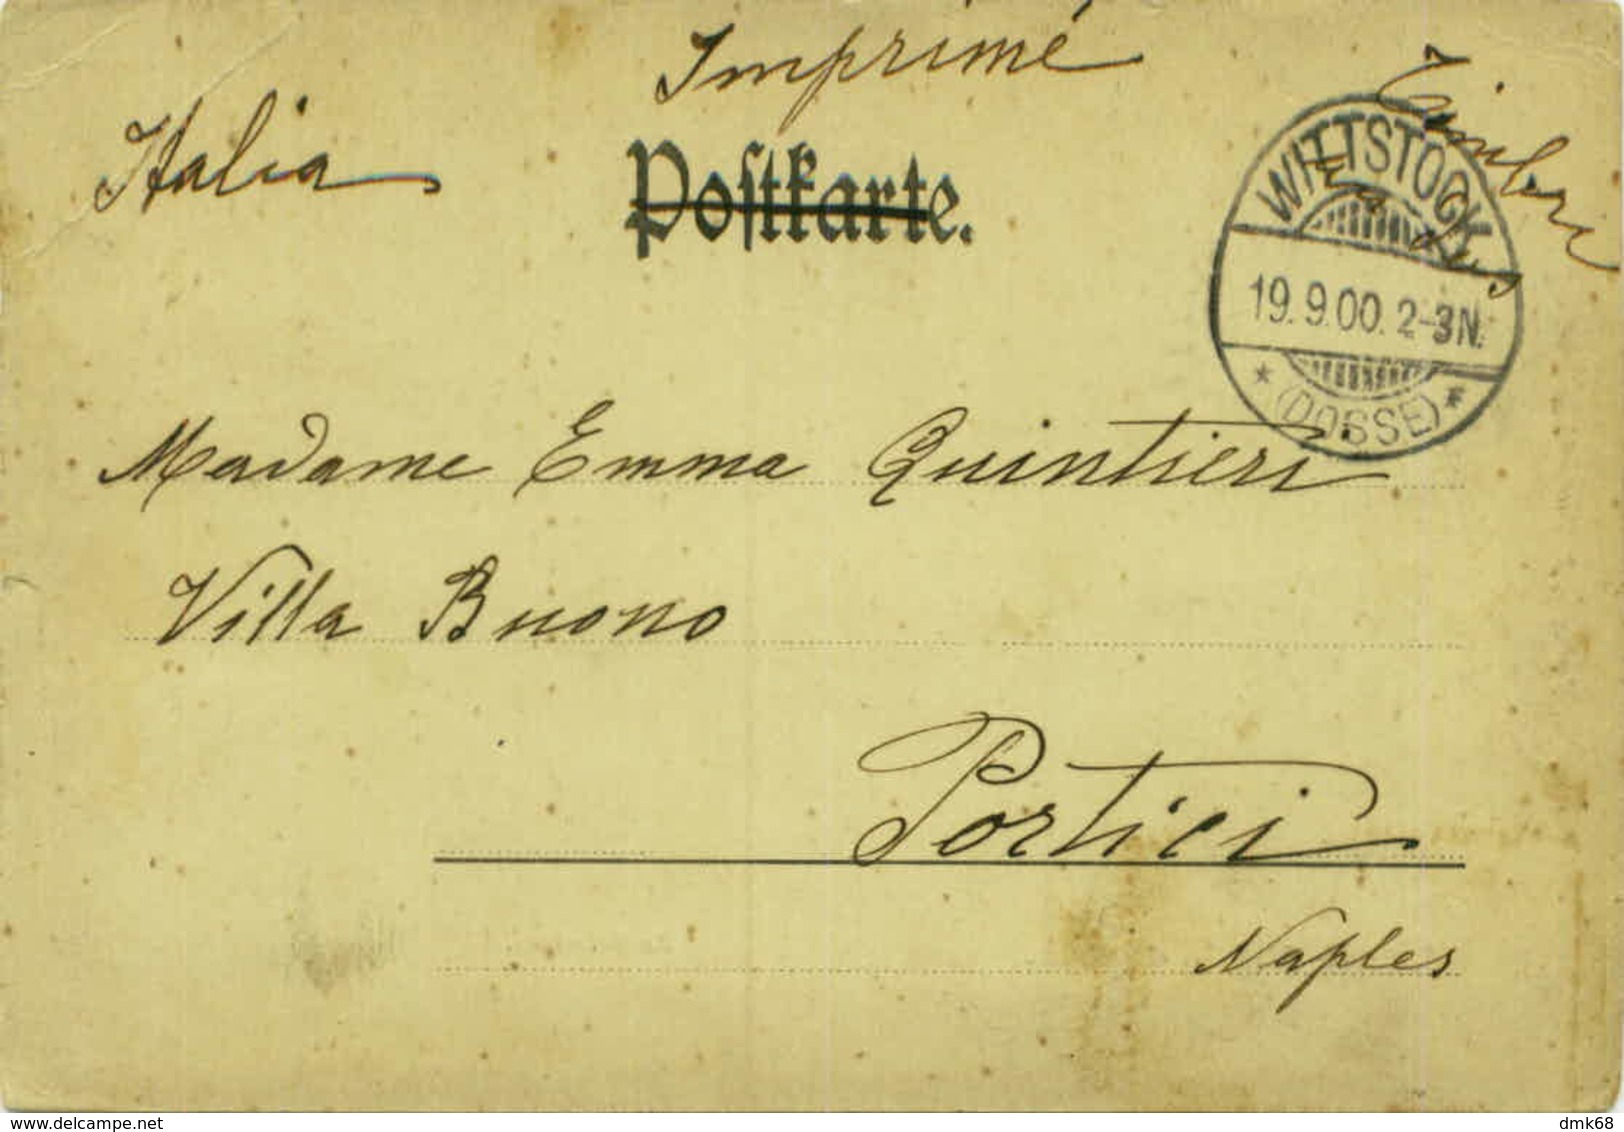 Imprimé
Italia
Postkarte.
Timbre
WITTSTOCK
19.9.00. 2-3N.
* (DOSSE) *
Madame Emma Quintieri
Villa Buono
Portici
Naples
delcampe.net
dmk68